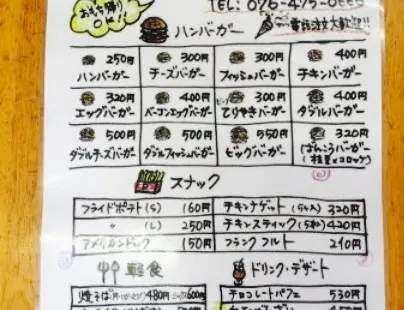 おもち帰り
OK!!
TEL: 076-475-0
電話注文大歓迎!!
ハンバーガー
250円 300円 300円 400円
ハンバーガー チーズバーガー フィッシュバーガー チキンバーガー
320円 400円 400円 400円
エッグバーガー ベーコンエッグバーガー てりやきバーガー ダブルバーガー
500円 500円 550円 320円
ダブルチーズバーガー ダブルフィッシュバーガー ビッグバーガー バーガー
スナック
フライドポテト(S) 160円 チキンナゲット(5ヶ入) 320円
〃 (L) 250円 チキンスティック(5本) 420円
アメリカンドック 150円 フランクフルト 210円
軽食 ドリンク・デザート
焼そば 480円 600円 チョコレートパフェ 530円
500円